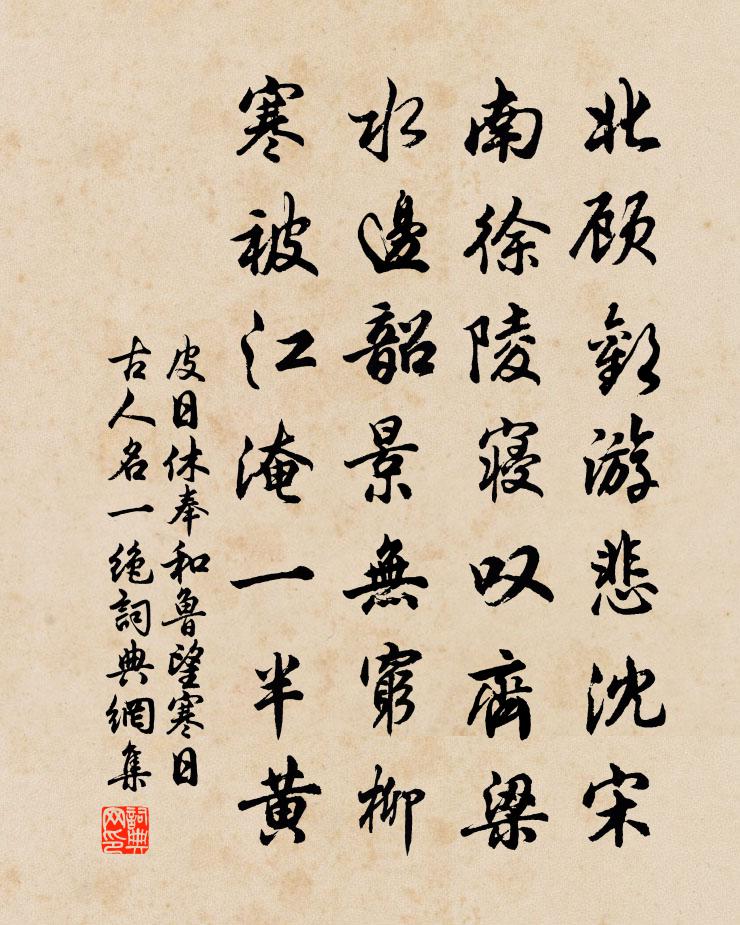 北顾歡游悲沈宋
南徐陵寝叹齊梁
水邊韶景無窮柳
寒被江淹一半黄
皮日休奉和魯望寒日
古人名一絶詞典網集
詞典网印